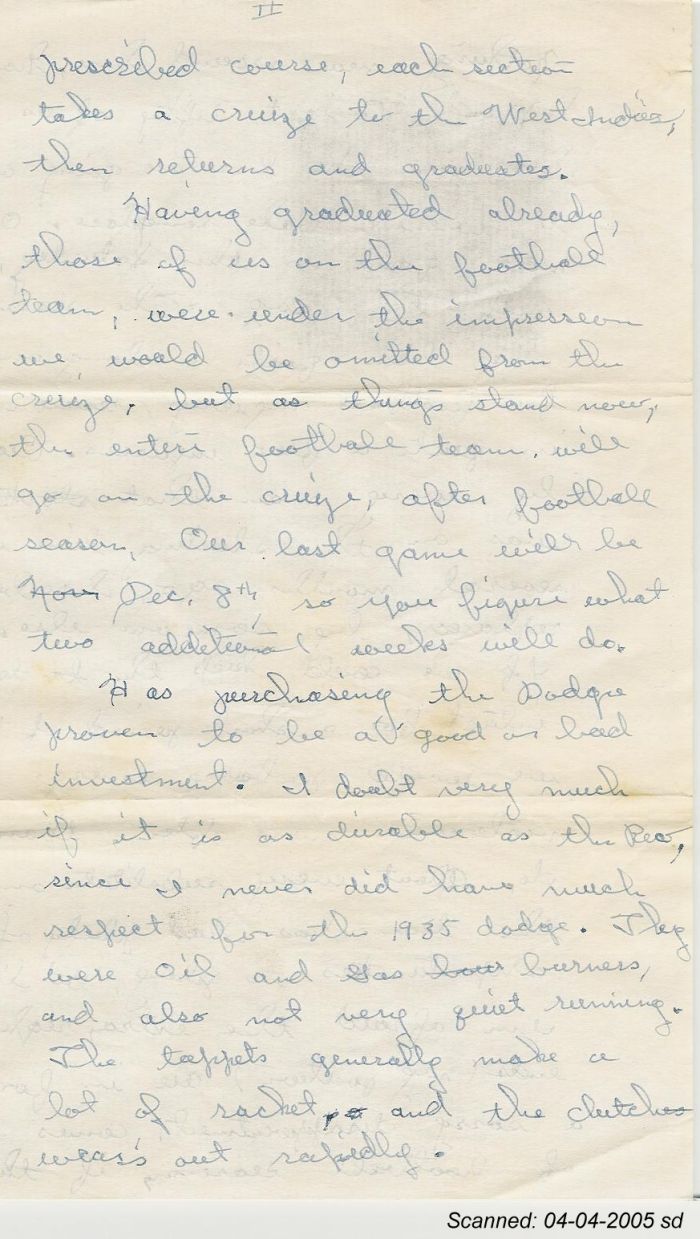 II
prescribed course, each section
takes a cruize to the West-Indies,
then returns and graduates.
Having graduated already,
those of us on the football
team, were under the impression
we would be omitted from the
cruize, but as things stand now,
the entire football team, will
go on the cruize, after football
season, Our last game will be
Nov Dec. 8th, so you figure what
two additional weeks will do.
Has purchasing the Dodge
proven to be a good or bad
investment. I doubt very much
if it is as durable as the Reo,
since I never did have much
respect for the 1935 dodge. They
were oil and gas burners,
and also not very quiet running.
The tappets generally make a
lot of racket, and the clutches
wears out rapidly.
Scanned: 04-04-2005 sd